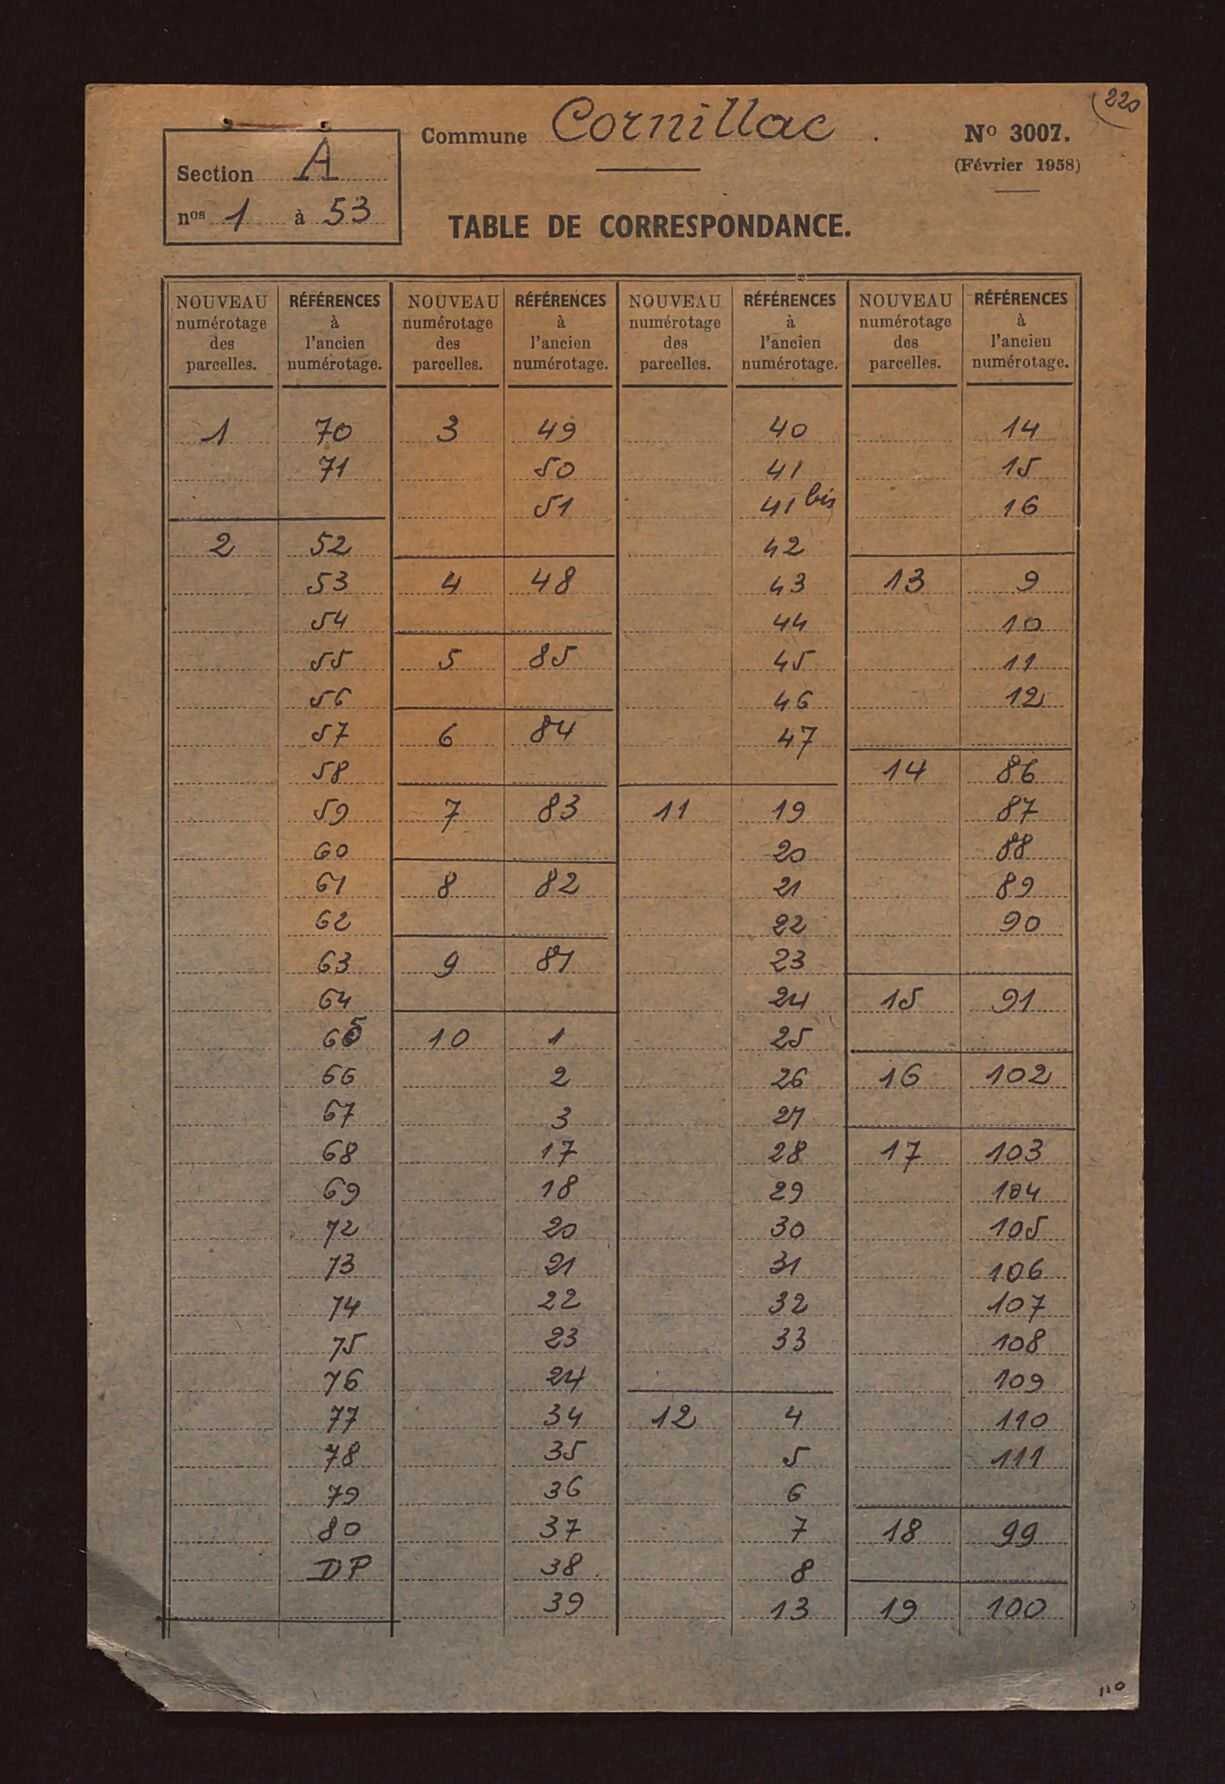 220
Section A
nos 1 à 53
Commune Cornillac.
No 3007.
(Février 1958)
TABLE DE CORRESPONDANCE.
NOUVEAU numérotage des parcelles. RÉFÉRENCES à l'ancien numérotage.
1 70
71
2 52
53
54
55
56
57
58
59
60
61
62
63
64
65
66
67
68
69
72
73
74
75
76
77
78
79
80
DP
NOUVEAU numérotage des parcelles. RÉFÉRENCES à l'ancien numérotage.
3 49
50
51
4 48
5 85
6 84
7 83
8 82
9 81
10 1
2
3
17
18
20
21
22
23
24
34
35
36
37
38
39
NOUVEAU numérotage des parcelles. RÉFÉRENCES à l'ancien numérotage.
40
41
41 bis
42
43
44
45
46
47
11 19
20
21
22
23
24
25
26
27
28
29
30
31
32
33
12 4
5
6
7
8
13
NOUVEAU numérotage des parcelles. RÉFÉRENCES à l'ancien numérotage.
14
15
16
13 9
10
11
12
14 86
87
88
89
90
15 91
16 102
17 103
104
105
106
107
108
109
110
111
18 99
19 100
110